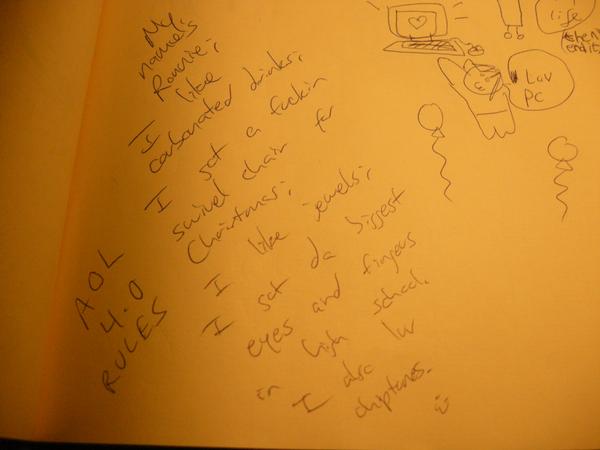 My
name's
Ronnie;
I like
carbonated drinks;
I got a fuckin
swivel chair for
Christmas;
I like jewels;
I got da biggest
eyes and fingers
in high school.
I also luv
chiptunes.
AOL
4.0
RULES
life
Luv
PC